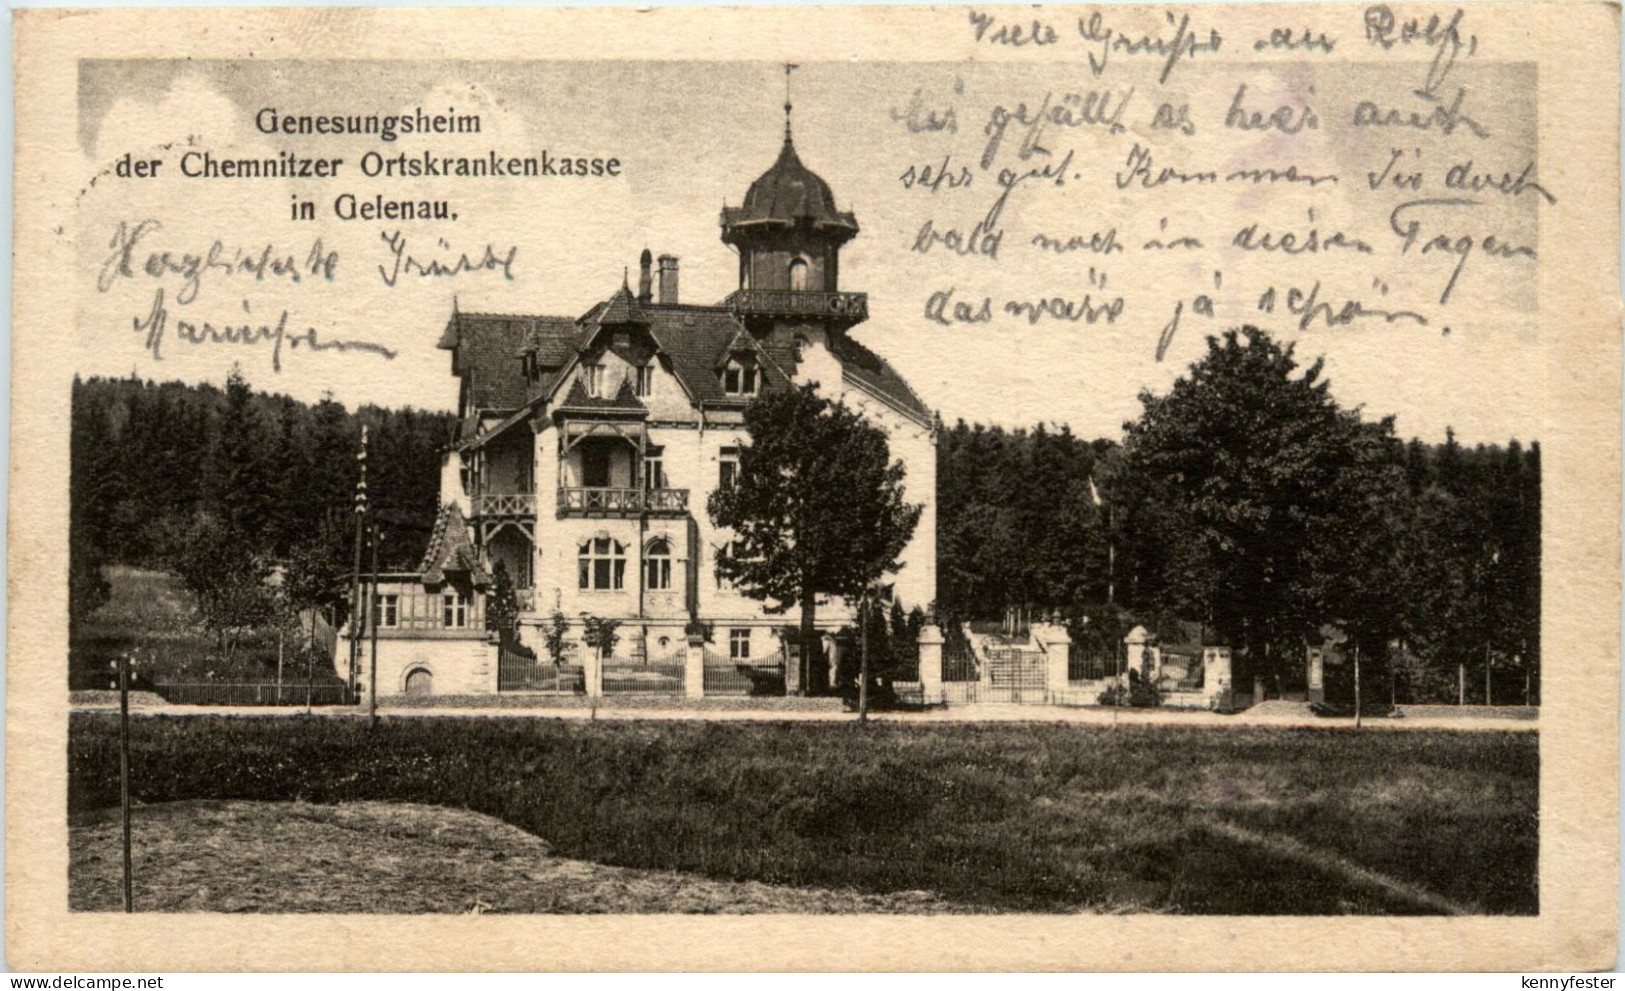 Viele Grüße an Rolf,
Genesungsheim
der Chemnitzer Ortskrankenkasse
in Gelenau.
gefällt es hier auch
sehr gut. Kommen Sie doch
bald noch in diesen Tagen
das wäre ja schön!
Herzlichste Grüße
Mariechen
kennyfester